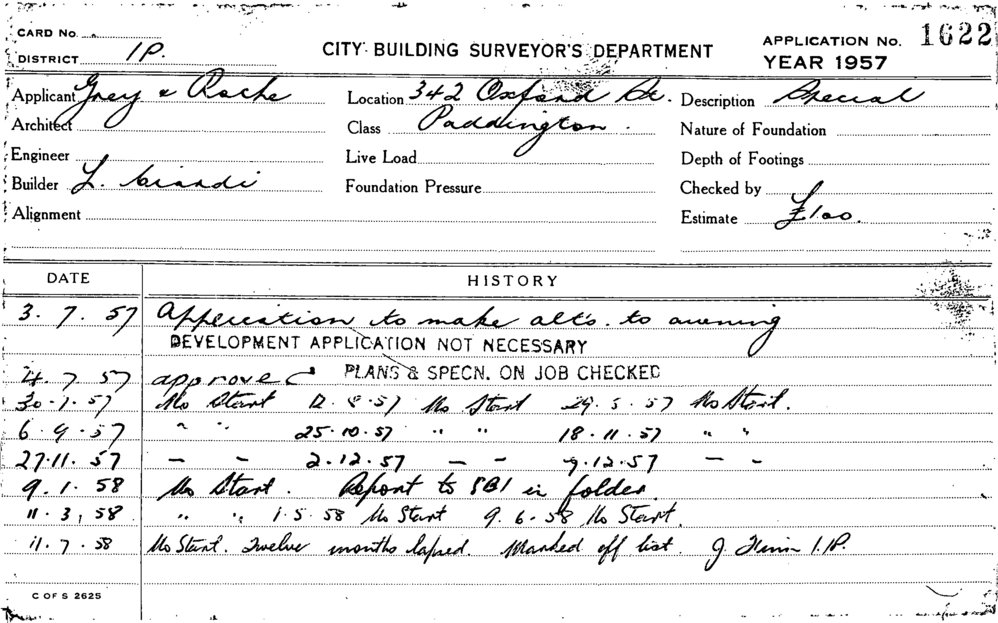 CARD No.
DISTRICT 1P.
CITY BUILDING SURVEYOR'S DEPARTMENT
APPLICATION No. 1622
YEAR 1957
Applicant Grey & Roche Location 342 Oxford St. Description Special
Architect Class Paddington. Nature of Foundation
Engineer Live Load Depth of Footings
Builder L. Foundation Pressure Checked by
Alignment Estimate £100.
DATE HISTORY
3.7.57 Application to make alt's. to awning
DEVELOPMENT APPLICATION NOT NECESSARY
4.7.57 approved PLANS & SPECN. ON JOB CHECKED
No Start 12.8.57 No Start No Start.
6.9.57 " " 25.10.57 " " 18.11.57 " "
27.11.57 - - 2.12.57 - - 9.12.57 - -
9.1.58 No Start. Report to SBI in folder.
11.3.58 " " 1.5.58 No Start 9.6.58 No Start.
11.7.58 No Start. Twelve months lapsed. Marked off list. J. 1.P.
C OF S 2625